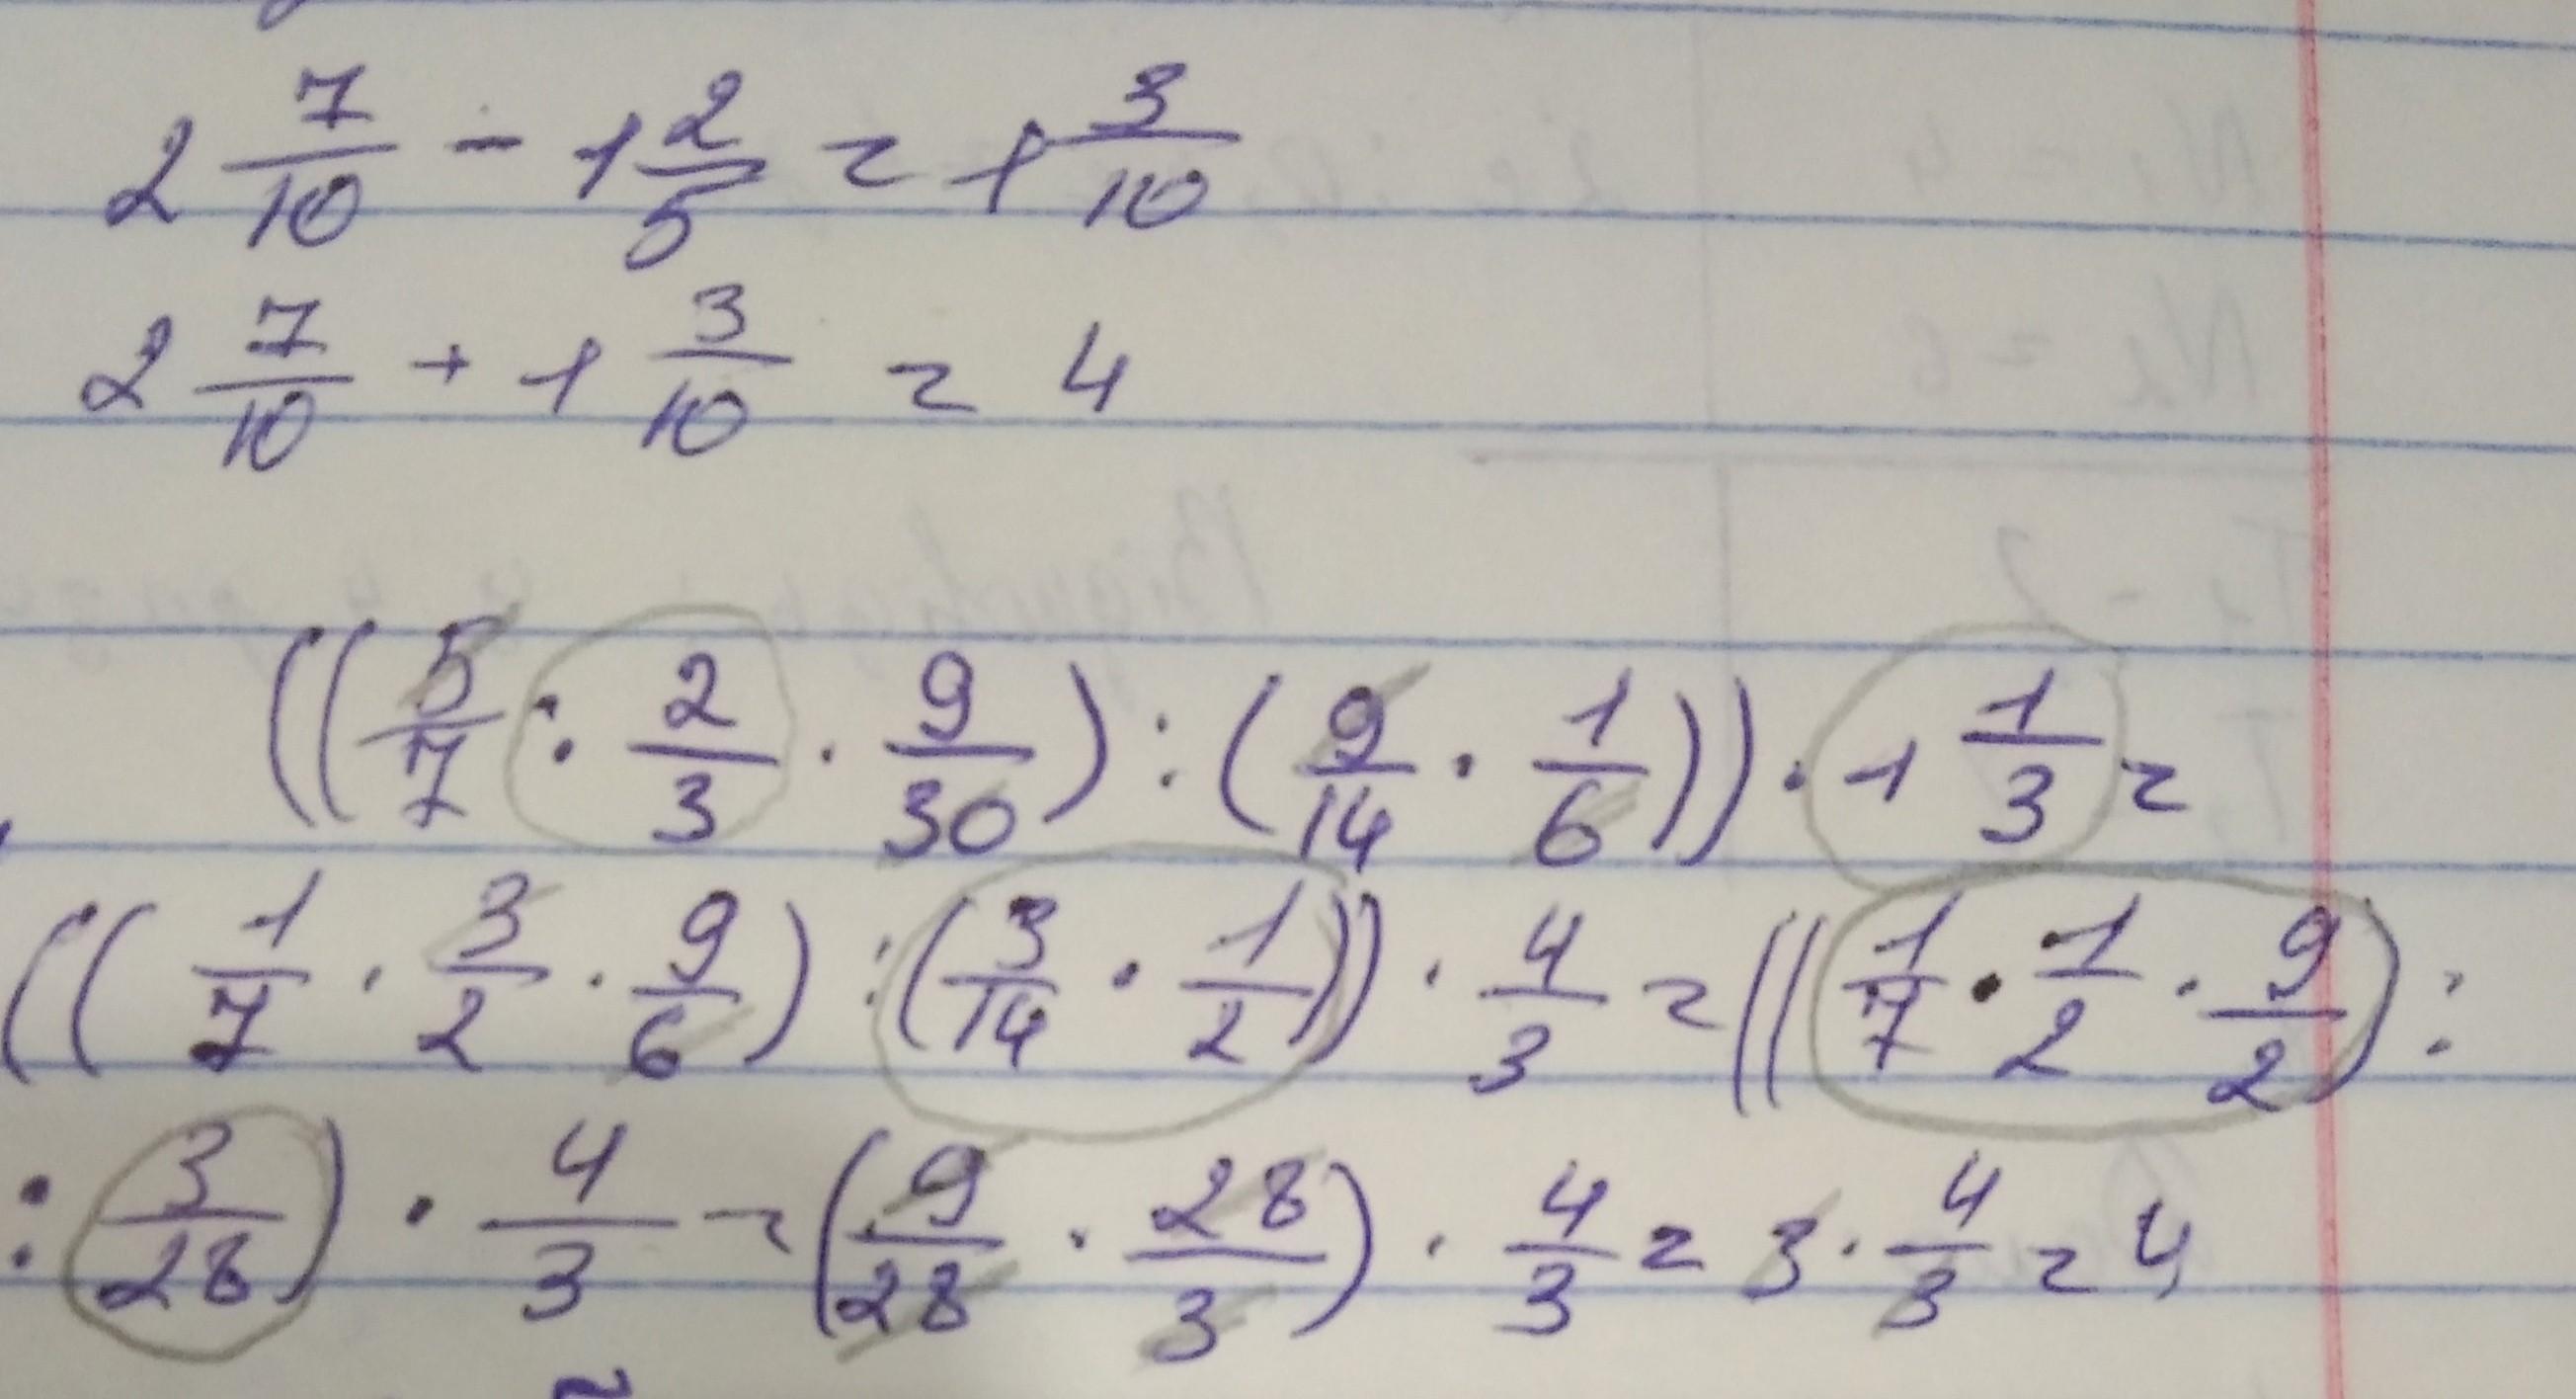 2 7/10 - 1 2/5 = 1 3/10
2 7/10 + 1 3/10 = 4
((5/7 : 2/3 · 9/30) : (9/14 · 1/6)) · 1 1/3 =
((1/7 · 3/2 · 9/6) : (3/14 · 1/2)) · 4/3 = ((1/7 · 1/2 · 9/2) :
: 3/28) · 4/3 = (9/28 · 28/3) · 4/3 = 3 · 4/3 = 4